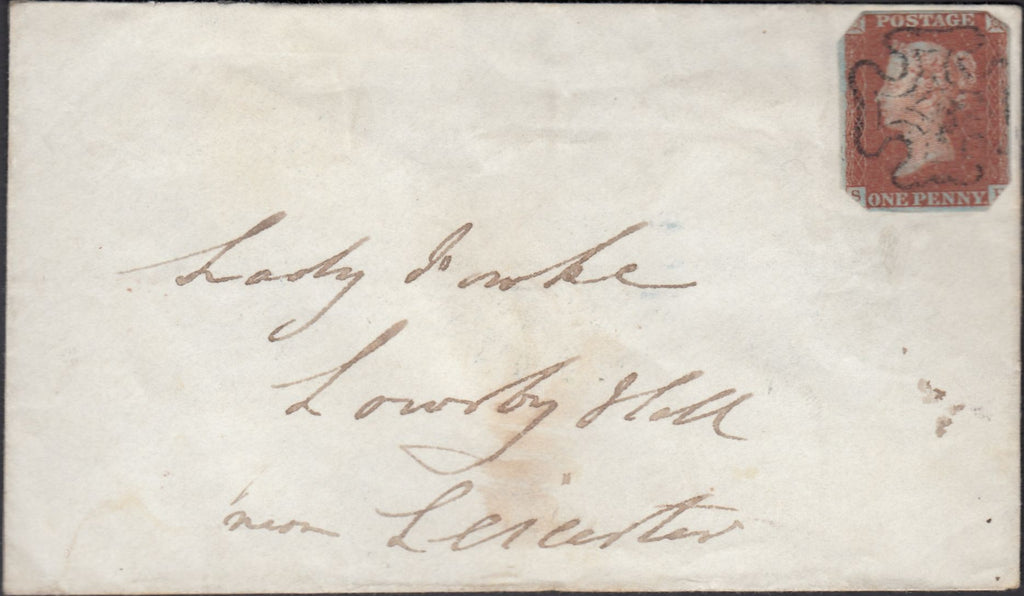 POSTAGE
S ONE PENNY
Lady Fowke
Lowesby Hall
near Leicester